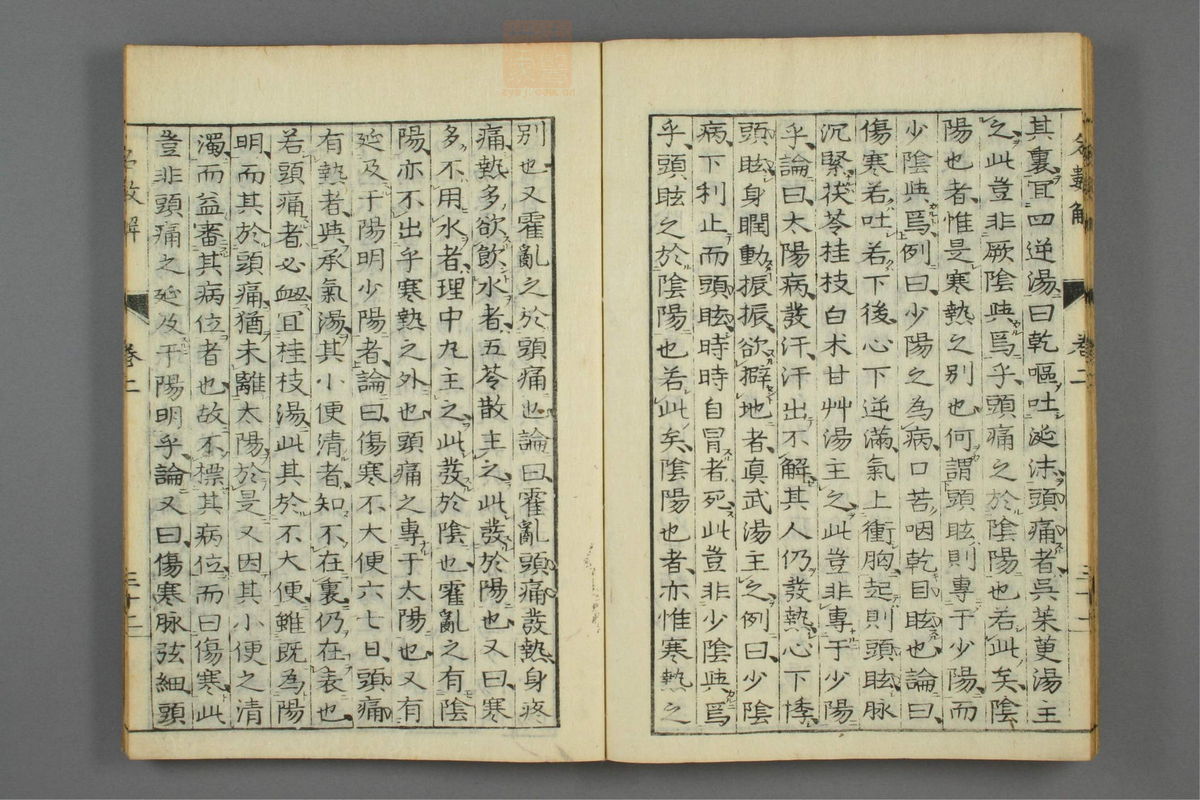 其裏宜四逆湯曰乾嘔吐涎沫頭痛者呉茱萸湯主
之此豈非厥陰與焉乎頭痛之於陰陽也若此矣陰
陽也者惟是寒熱之別也何謂頭眩則專于少陽而
少陰與焉例曰少陽之為病口苦咽乾目眩也論曰
傷寒若吐若下後心下逆滿氣上衝胸起則頭眩脉
沉緊茯苓桂枝白朮甘艸湯主之此豈非專于少陽
乎論曰太陽病發汗汗出不解其人仍發熱心下悸
頭眩身瞤動振振欲擗地者真武湯主之例曰少陰
病下利止而頭眩時時自冒者死此豈非少陰與焉
乎頭眩之於陰陽也若此矣陰陽也者亦惟寒熱之
卷二
別也又霍亂之於頭痛也論曰霍亂頭痛發熱身疼
痛熱多欲飲水者五苓散主之此發於陽也又曰寒
多不用水者理中丸主之此發於陰也霍亂之有陰
陽亦不出乎寒熱之外也頭痛之專于太陽也又有
延及于陽明少陽者論曰傷寒不大便六七日頭痛
有熱者與承氣湯其小便清者知不在裏仍在表也
若頭痛者必衄宜桂枝湯此其於不大便雖既為陽
明而其於頭痛猶未離太陽於是又因其小便之清
濁而益審其病位者也故不標其病位而曰傷寒此
豈非頭痛之延及于陽明乎論又曰傷寒脉弦細頭
卷二
三十二